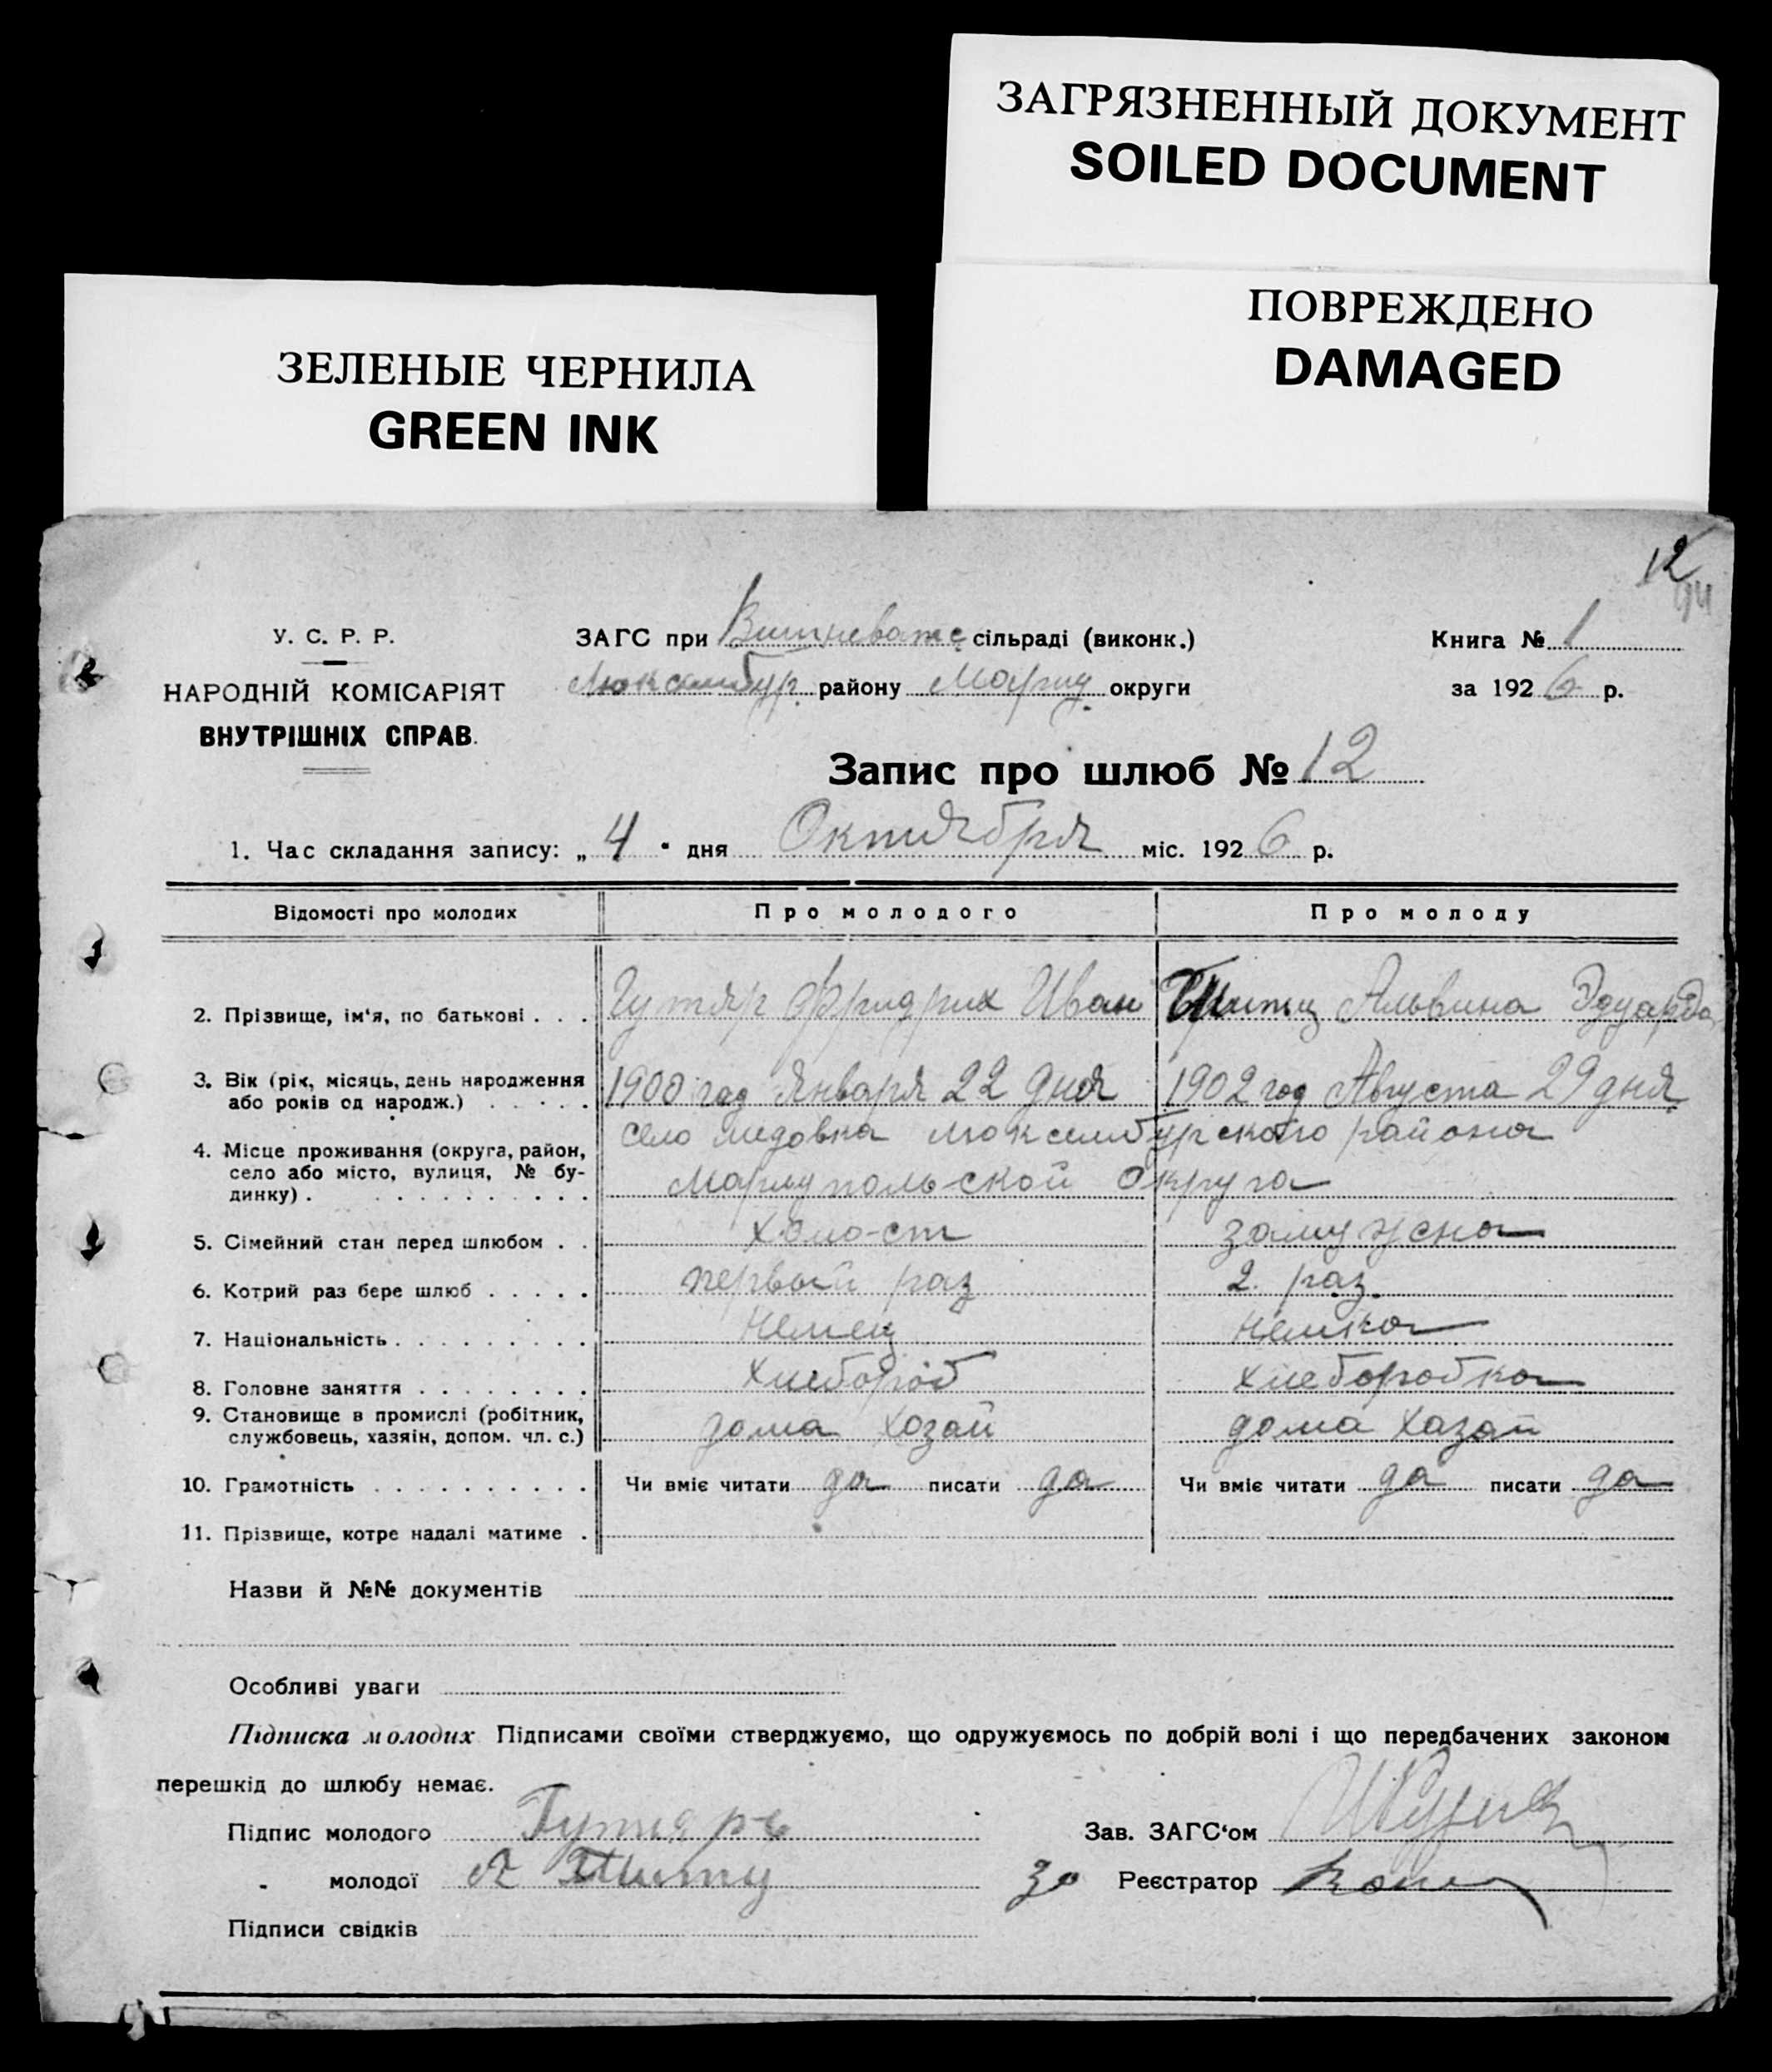 ЗАГРЯЗНЕННЫЙ ДОКУМЕНТ
SOILED DOCUMENT
ПОВРЕЖДЕНО
DAMAGED
ЗЕЛЕНЫЕ ЧЕРНИЛА
GREEN INK
12
У. С. Р. Р.
НАРОДНІЙ КОМІСАРІЯТ
ВНУТРІШНІХ СПРАВ.
ЗАГС при Вишневатс сільраді (виконк.)
Люксембур. району Мариу. округи
Книга № 1
за 1926 р.
Запис про шлюб № 12
1. Час складання запису: „ 4 " дня Октября міс. 1926 р.
Відомості про молодих Про молодого Про молоду
2. Прізвище, ім'я, по батькові . . . Гутяр Фридрих Иван Альвина Эдуардо
3. Вік (рік, місяць, день народження 1900 год Января 22 дня 1902 год Августа 29 дня
або років од народж.) . . . . .
село Медовка Люксембурского района
4. Місце проживання (округа, район,
село або місто, вулиця, № бу-
динку) . . . . . . . . . . Мариупольской Округа
5. Сімейний стан перед шлюбом . . Холост замужна
6. Котрий раз бере шлюб . . . . . первый раз 2. раз.
7. Національність . . . . . . . . . Немец немка
8. Головне заняття . . . . . . . . Хлебороб хлеборобка
9. Становище в промислі (робітник,
службовець, хазяїн, допом. чл. с.) дома хозяй дома хазяй
10. Грамотність . . . . . . . . . . Чи вміє читати да писати да Чи вміє читати да писати да
11. Прізвище, котре надалі матиме .
Назви й №№ документів
Особливі уваги
Підписка молодих Підписами своїми стверджуємо, що одружуємось по добрій волі і що передбачених законом
перешкід до шлюбу немає.
Підпис молодого Гутяръ Зав. ЗАГС'ом
" молодої А Титц За Реєстратор
Підписи свідків